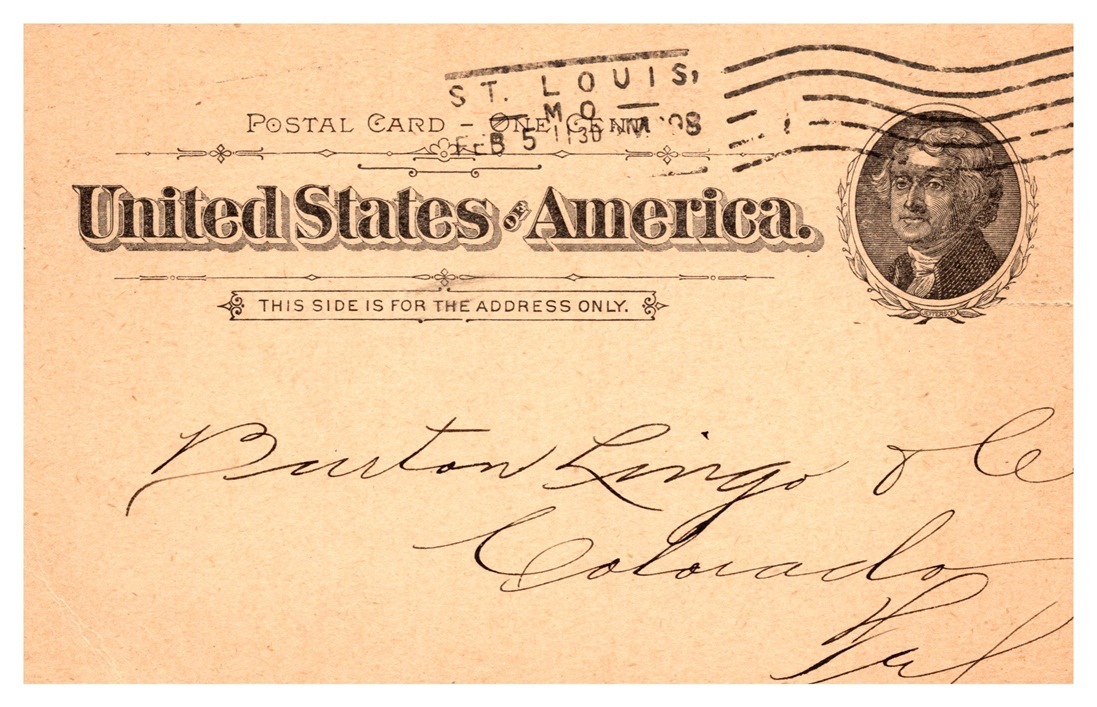 ST. LOUIS,
MO
FEB 5 1130 AM '98
POSTAL CARD - ONE CENT
United States OF America.
THIS SIDE IS FOR THE ADDRESS ONLY.
JEFFERSON
Burton Lingo & Co
Colorado